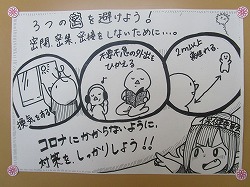 3つの密を避けよう!
密閉、密集、密接をしないために…。
換気をする
不要不急の外出を
ひかえる
2m以上
離れる。
コロナにかからないように、
対策を、しっかりしよう!!